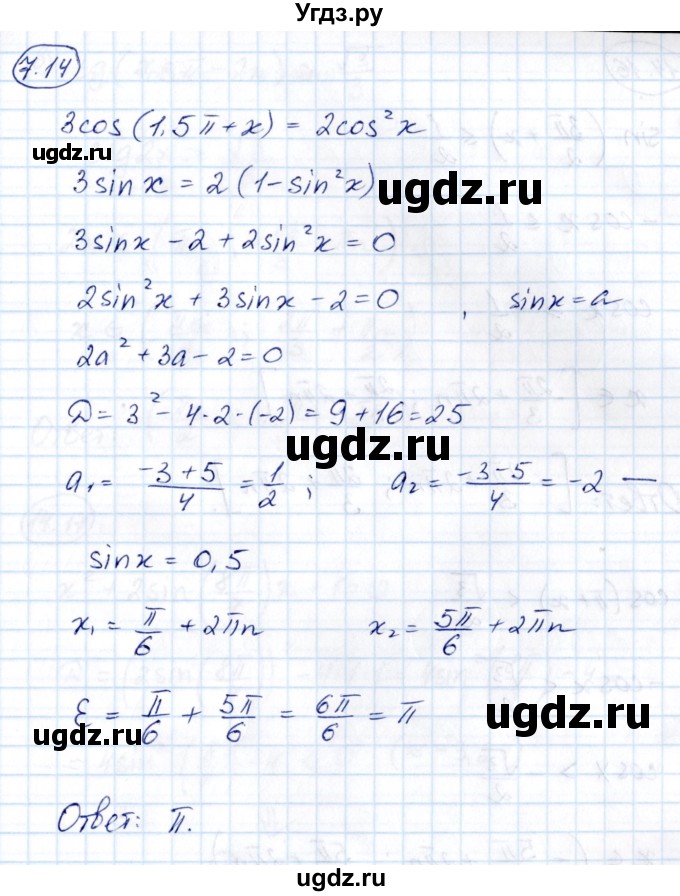 Угдз.ру
7.14
3cos(1,5π+x) = 2cos²x
ugdz.ru
3sinx = 2(1-sin²x)
ugdz.ru
3sinx - 2 + 2sin²x = 0
2sin²x + 3sinx - 2 = 0 , sinx = a
2a² + 3a - 2 = 0
D = 3² - 4·2·(-2) = 9 + 16 = 25
ugdz.ru
a₁ = (-3+5)/4 = 1/2 ; a₂ = (-3-5)/4 = -2 —
sinx = 0,5
x₁ = π/6 + 2πn x₂ = 5π/6 + 2πn
Ɛ = π/6 + 5π/6 = 6π/6 = π
ugdz.ru
ugdz.ru
Ответ: π.